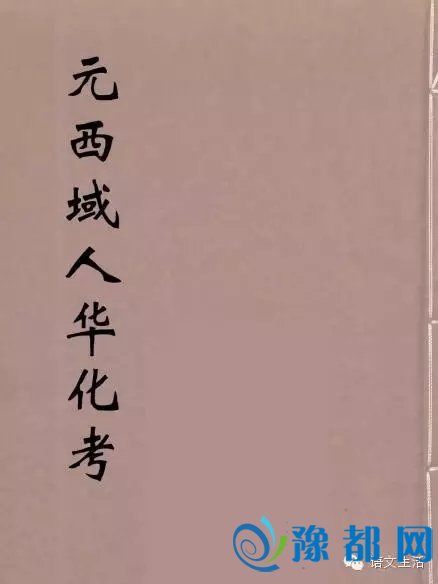 元西域人华化考
豫都网
语文生活